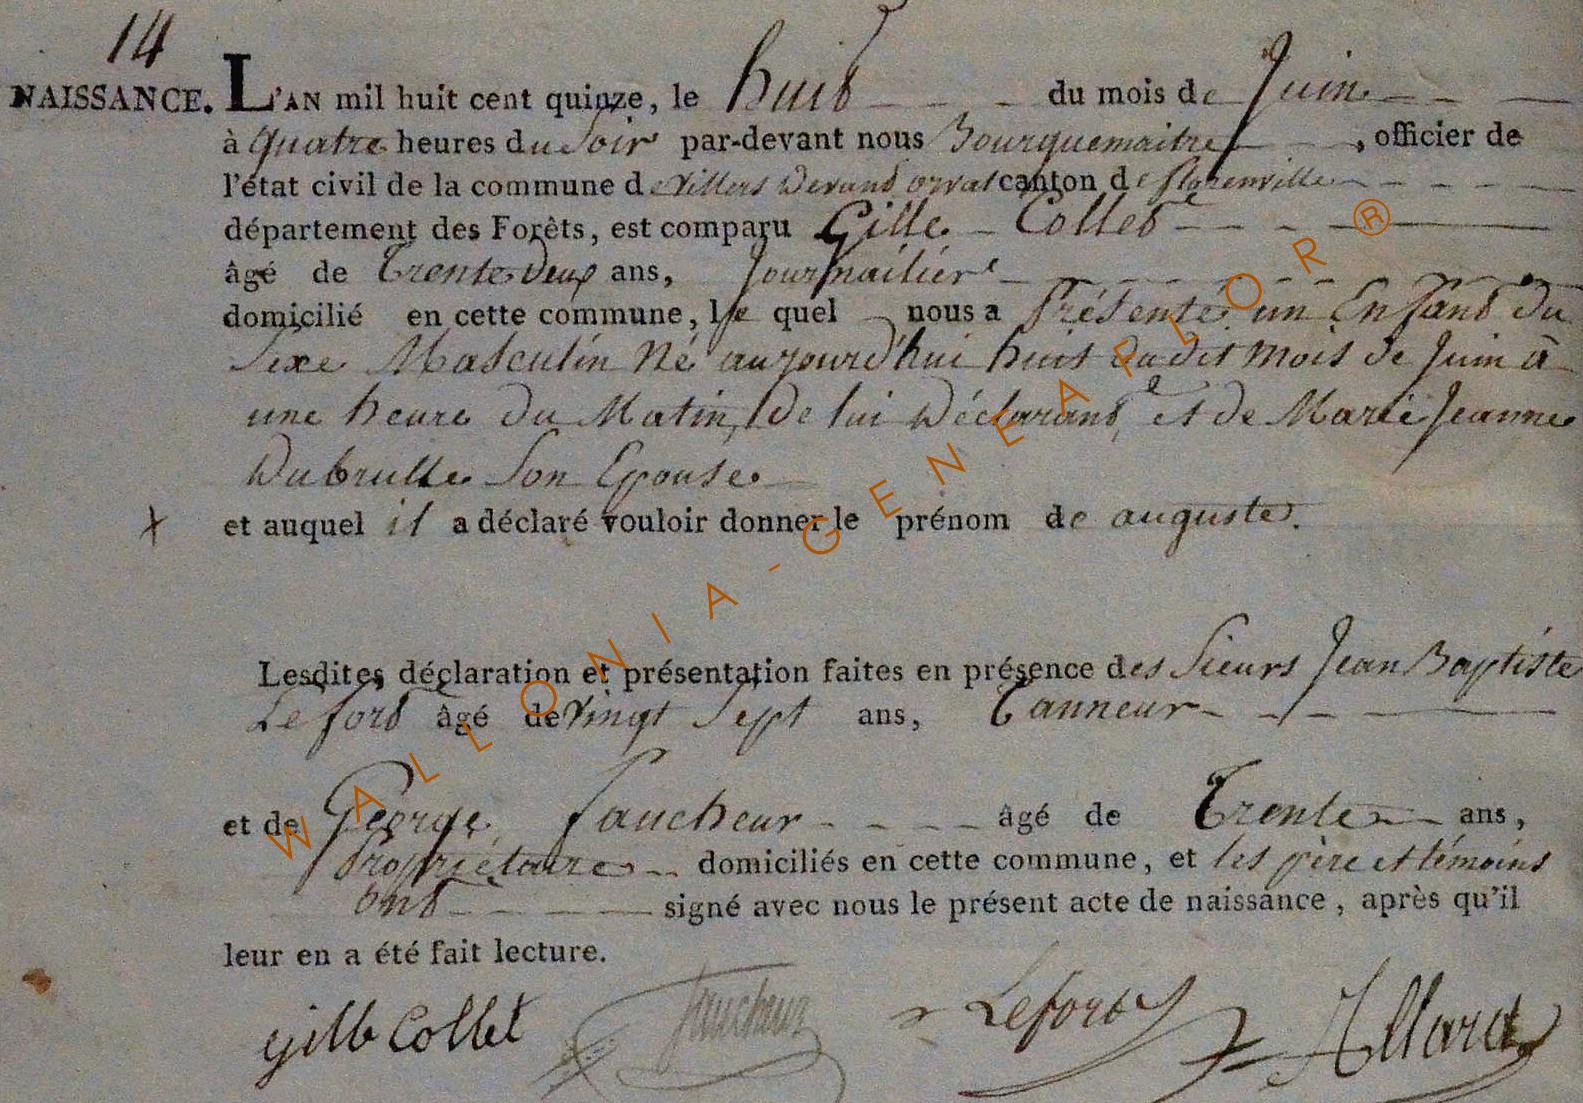 14
NAISSANCE. L'AN mil huit cent quinze, le huit du mois de Juin
à quatre heures du Soir par-devant nous Bourguemaitre, officier de
l'état civil de la commune de Villers devant orval canton de florenville
département des Forêts, est comparu Gille Collet
âgé de Trente Deux ans, Journailier
domicilié en cette commune, le quel nous a Présenté un Enfant du
Sexe Masculin Né aujourd'hui huit dudit mois de Juin à
une heure du Matin, de lui Déclarant, et de Marie Jeanne
Dubrulle Son Epouse
et auquel il a déclaré vouloir donner le prénom de auguste.
Lesdites déclaration et présentation faites en présence des Sieurs Jean Baptiste
Lefort âgé de Vingt Sept ans, Tanneur
et de George faucheur âgé de Trente ans,
Propriétaire domiciliés en cette commune, et les père et témoins
ont signé avec nous le présent acte de naissance, après qu'il
leur en a été fait lecture.
gille Collet faucheur Lefort Allard
WALLONIA-GENEAPLOR®